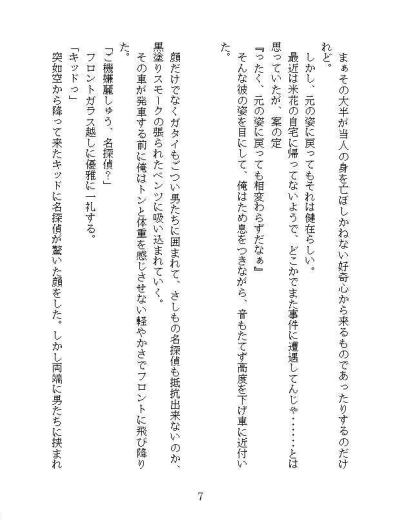 まぁその大半が当人の身を亡ぼしかねない好奇心から来るものであったりするのだけ
れど。
しかし、元の姿に戻ってもそれは健在らしい。
最近は米花の自宅に帰ってないようで、どこかでまた事件に遭遇してんじゃ・・・・・・とは
思っていたが、案の定
『ったく、元の姿に戻っても相変わらずだなぁ』
そんな彼の姿を目にして、俺はため息をつきながら、音もたてず高度を下げ車に近付い
た。
顔だけでなくガタイもごつい男たちに囲まれて、さしもの名探偵も抵抗出来ないのか、
黒塗りスモークの張られたベンツに吸い込まれていく。
その車が発車する前に俺はトンと体重を感じさせない軽やかさでフロントに飛び降り
た。
「ご機嫌麗しゅう、名探偵？」
フロントガラス越しに優雅に一礼する。
「キッドっ」
突如空から降って来たキッドに名探偵が驚いた顔をした。しかし両端に男たちに挟まれ
7